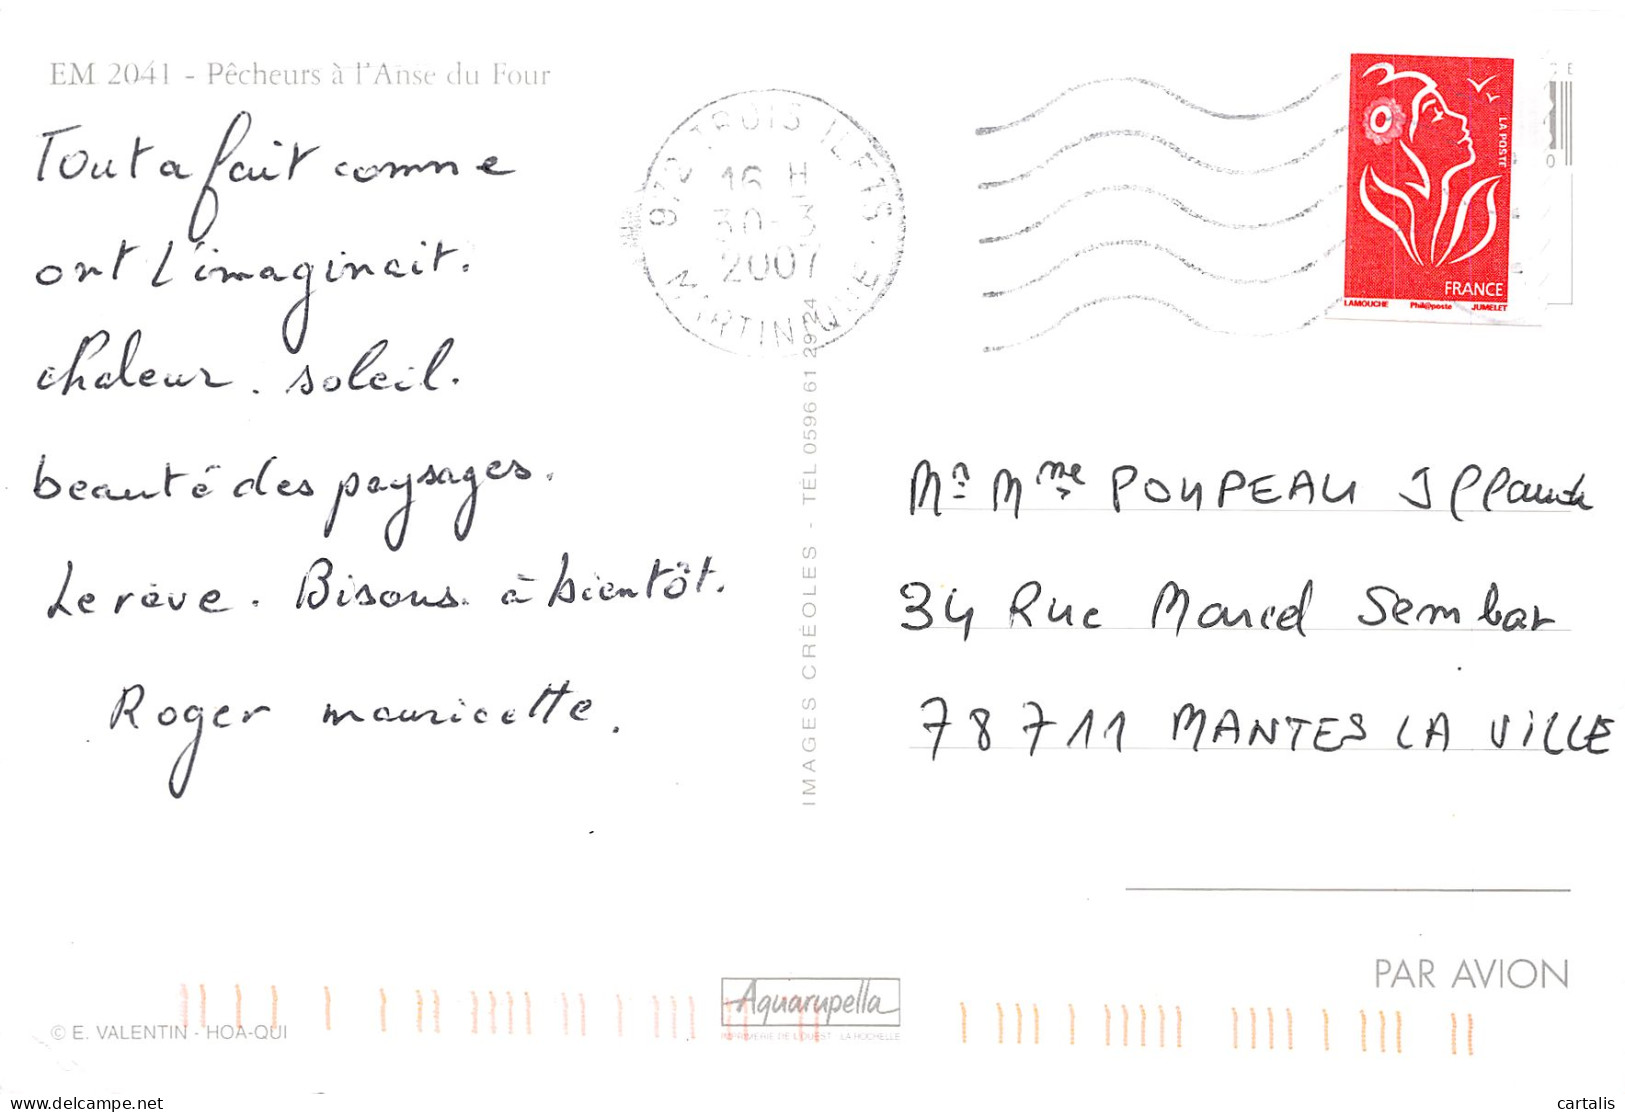 EM 2041 - Pêcheurs à l'Anse du Four
Tout a fait comme
ont l'imaginait.
chaleur. soleil.
beauté des paysages.
Le rêve. Bisous. à bientôt.
Roger mauricette.
972 TROIS ILETS
16 H
30-3
2007
MARTINIQUE
LA POSTE
FRANCE
LAMOUCHE Phil@poste JUMELET
IMAGES CRÉOLES - TEL 0596 61 29 24
Mr Mme POUPEAU J Claude
34 Rue Marcel Sembat
78711 MANTES LA VILLE
PAR AVION
© E. VALENTIN - HOA-QUI
Aquarupella
IMPRIMERIE DE L'OUEST - LA ROCHELLE
delcampe.net
cartalis